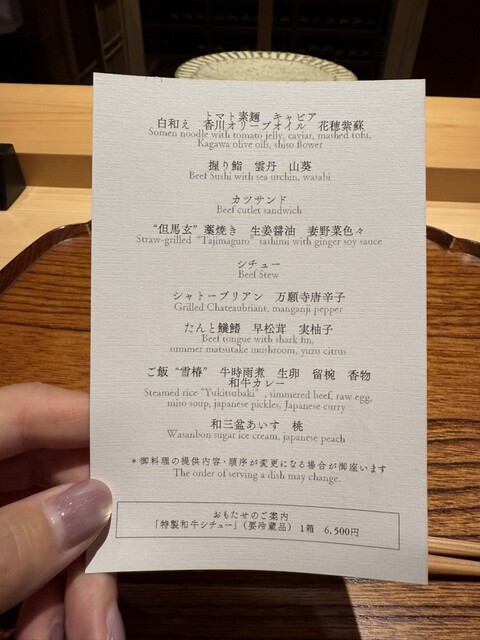 トマト素麺　キャビア
白和え　香川オリーブオイル　花穂紫蘇
Somen noodle with tomato jelly, caviar, mashed tofu,
Kagawa olive oils, shiso flower
握り鮨　雲丹　山葵
Beef Sushi with sea urchin, wasabi
カツサンド
Beef cutlet sandwich
“但馬玄”藁焼き　生姜醤油　妻野菜色々
Straw-grilled “Tajimaguro” sashimi with ginger soy sauce
シチュー
Beef Stew
シャトーブリアン　万願寺唐辛子
Grilled Chateaubriant, manganji pepper
たんと鱶鰭　早松茸　実柚子
Beef tongue with shark fin,
summer matsutake mushroom, yuzu citrus
ご飯“雪椿”　牛時雨煮　生卵　留椀　香物
和牛カレー
Steamed rice “Yukitsubaki”, simmered beef, raw egg,
miso soup, japanese pickles, Japanese curry
和三盆あいす　桃
Wasanbon sugar ice cream, japanese peach
＊御料理の提供内容・順序が変更になる場合が御座います
The order of serving a dish may change.
おもたせのご案内
「特製和牛シチュー」（要冷蔵品）　1箱　6,500円